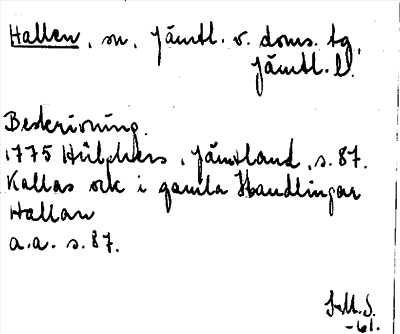 Hallen, sn, Jämtl. v. doms. tg,
Jämtl. l.
Beskrivning.
1775 Hülphers, Jämtland, s. 87.
Kallas ock i gamla Handlingar
Hallan
a.a. s. 87.
S.M.S.
-61.